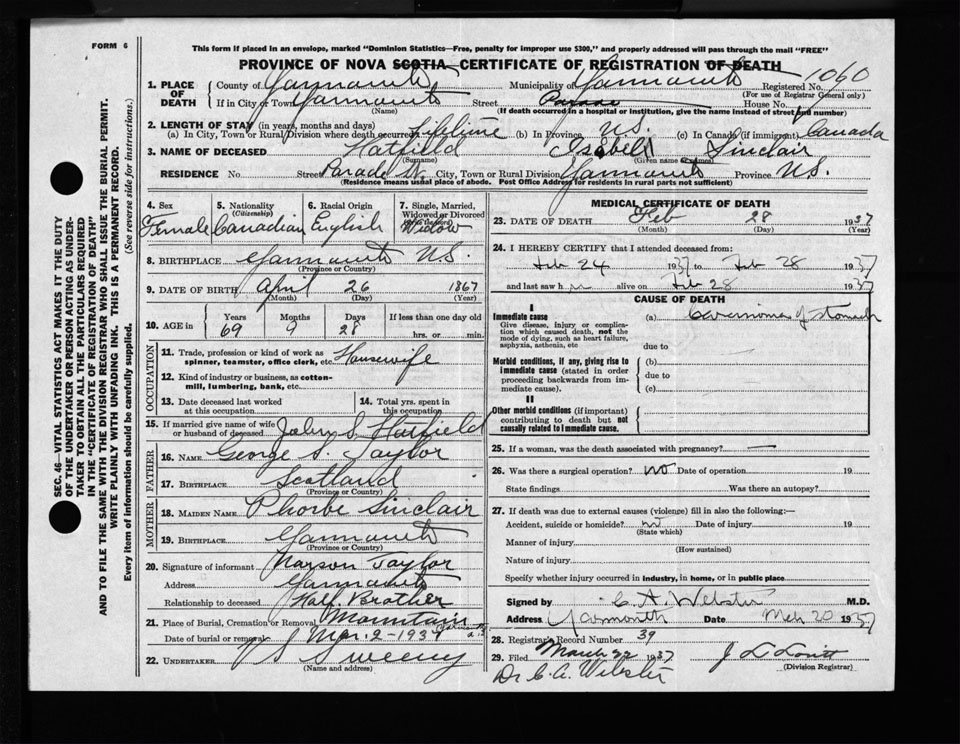 FORM 6
This form if placed in an envelope, marked "Dominion Statistics—Free, penalty for improper use $300," and properly addressed will pass through the mail "FREE"
PROVINCE OF NOVA SCOTIA—CERTIFICATE OF REGISTRATION OF DEATH
1. PLACE OF DEATH
County of Yarmouth Municipality of Yarmouth Registered No. 1060
(For use of Registrar General only)
If in City or Town Yarmouth Street Parade House No.
(Name) (If death occurred in a hospital or institution, give the name instead of street and number)
2. LENGTH OF STAY (in years, months and days)
(a) In City, Town or Rural Division where death occurred Lifetime (b) In Province N.S. (c) In Canada (if immigrant) Canada
3. NAME OF DECEASED Hatfield Isabell Sinclair
(Surname) (Given name or names)
RESIDENCE No. Street Parade St. City, Town or Rural Division Yarmouth Province N.S.
(Residence means usual place of abode. Post Office Address for residents in rural parts not sufficient)
4. Sex 5. Nationality (Citizenship) 6. Racial Origin 7. Single, Married, Widowed or Divorced
Female Canadian English Widow
8. BIRTHPLACE Yarmouth N.S.
(Province or Country)
9. DATE OF BIRTH April 26 1867
(Month) (Day) (Year)
10. AGE in Years Months Days If less than one day old
69 9 28 hrs. or min.
OCCUPATION
11. Trade, profession or kind of work as spinner, teamster, office clerk, etc. Housewife
12. Kind of industry or business, as cotton-mill, lumbering, bank, etc.
13. Date deceased last worked at this occupation 14. Total yrs. spent in this occupation
15. If married give name of wife or husband of deceased John S. Hatfield
FATHER
16. NAME George S. Taylor
17. BIRTHPLACE Scotland
(Province or Country)
MOTHER
18. MAIDEN NAME Phoebe Sinclair
19. BIRTHPLACE Yarmouth
(Province or Country)
20. Signature of informant Taylor
Address Yarmouth
Relationship to deceased Half Brother
21. Place of Burial, Cremation or Removal Mountain
Date of burial or removal Mar. 2-1937
22. UNDERTAKER Sweeny
(Name and address)
MEDICAL CERTIFICATE OF DEATH
23. DATE OF DEATH Feb 28 1937
(Month) (Day) (Year)
24. I HEREBY CERTIFY that I attended deceased from:
Feb 24 1937 to Feb 28 1937
and last saw h er alive on Feb 28 1937
CAUSE OF DEATH
I
Immediate cause (a) Carcinoma of stomach
Give disease, injury or complication which caused death, not the mode of dying, such as heart failure, asphyxia, asthenia, etc
due to
Morbid conditions, if any, giving rise to immediate cause (stated in order proceeding backwards from immediate cause).
(b)
due to
(c)
II
Other morbid conditions (if important) contributing to death but not causally related to immediate cause.
25. If a woman, was the death associated with pregnancy? —
26. Was there a surgical operation? no Date of operation 19
State findings Was there an autopsy?
27. If death was due to external causes (violence) fill in also the following:—
Accident, suicide or homicide? no Date of injury 19
(State which)
Manner of injury
(How sustained)
Nature of injury
Specify whether injury occurred in industry, in home, or in public place
Signed by C. A. Webster M.D.
Address Yarmouth Date Mch 20 1937
28. Registrar's Record Number 39
29. Filed March 22 1937
(Division Registrar)
Dr. C. A. Webster
SEC. 46—VITAL STATISTICS ACT MAKES IT THE DUTY
OF THE UNDERTAKER OR PERSON ACTING AS UNDER-
TAKER TO OBTAIN ALL THE PARTICULARS REQUIRED
IN THE "CERTIFICATE OF REGISTRATION OF DEATH"
AND TO FILE THE SAME WITH THE DIVISION REGISTRAR WHO SHALL ISSUE THE BURIAL PERMIT.
WRITE PLAINLY WITH UNFADING INK. THIS IS A PERMANENT RECORD.
Every item of information should be carefully supplied. (See reverse side for instructions.)